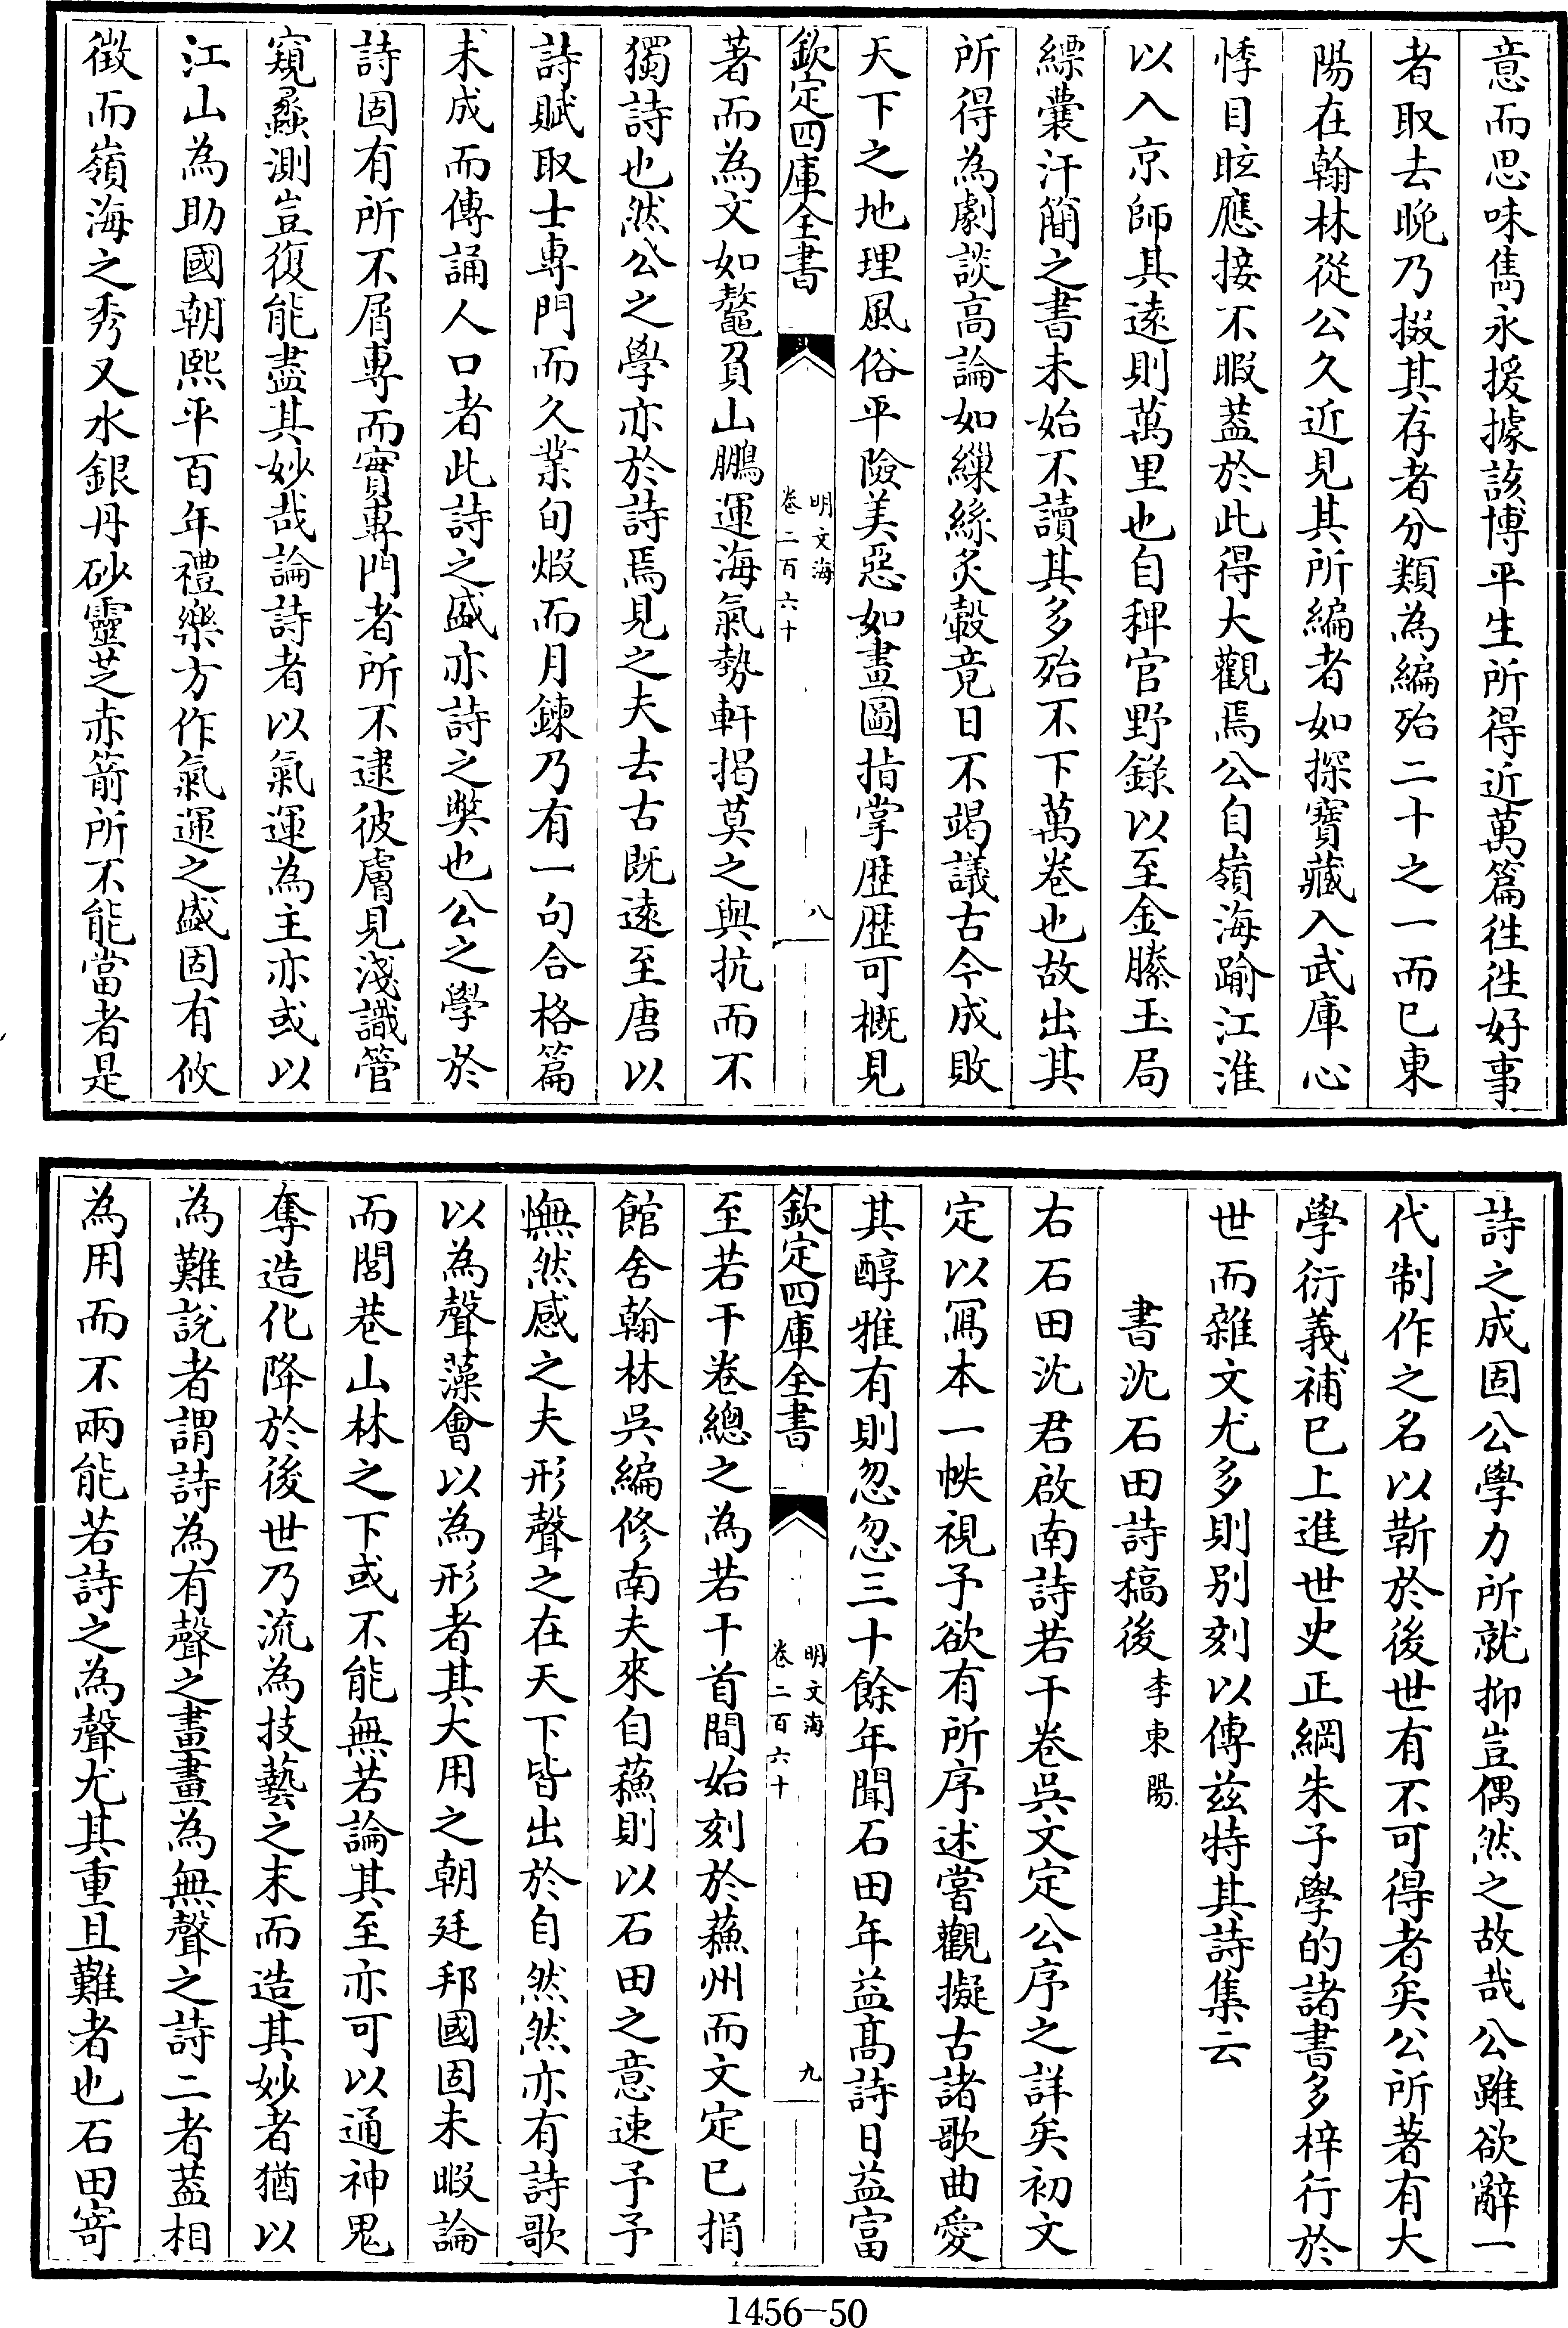 意而思味雋永援據該博平生所得近萬篇徃徃好事
者取去晚乃掇其存者分類為編殆二十之一而已東
陽在翰林從公久近見其所編者如探寶藏入武庫心
悸目眩應接不暇蓋於此得大觀焉公自嶺海踰江淮
以入京師其逺則萬里也自稗官野錄以至金縢玉局
縹囊汗簡之書未始不讀其多殆不下萬卷也故出其
所得為劇談高論如繅絲炙轂竟日不竭議古今成敗
天下之地理風俗平險美惡如畫圖指掌歴歴可概見
欽定四庫全書
明文海
卷二百六十
八
著而為文如鼇負山鵬運海氣勢軒掲莫之與抗而不
獨詩也然公之學亦於詩焉見之夫去古既逺至唐以
詩賦取士專門而久業旬煅而月鍊乃有一句合格篇
未成而傳誦人口者此詩之盛亦詩之獘也公之學於
詩固有所不屑專而實專門者所不逮彼膚見淺識管
窺蠡測豈復能盡其妙哉論詩者以氣運為主亦或以
江山為助國朝熙平百年禮樂方作氣運之盛固有攸
徵而嶺海之秀又水銀丹砂靈芝赤箭所不能當者是
詩之成固公學力所就抑豈偶然之故哉公雖欲辭一
代制作之名以靳於後世有不可得者矣公所著有大
學衍義補已上進世史正綱朱子學的諸書多梓行於
世而雜文尤多則别刻以傳兹特其詩集云
書沈石田詩稿後李東陽
右石田沈君啟南詩若干卷吳文定公序之詳矣初文
定以冩本一帙視予欲有所序述嘗觀擬古諸歌曲愛
其醇雅有則忽忽三十餘年聞石田年益髙詩日益富
欽定四庫全書
明文海
卷二百六十
九
至若干卷總之為若干首間始刻於蘓州而文定已捐
館舍翰林吳編修南夫來自蘓則以石田之意速予予
憮然感之夫形聲之在天下皆出於自然然亦有詩歌
以為聲藻會以為形者其大用之朝廷邦國固未暇論
而閭巷山林之下或不能無若論其至亦可以通神鬼
奪造化降於後世乃流為技藝之末而造其妙者猶以
為難說者謂詩為有聲之畫畫為無聲之詩二者蓋相
為用而不兩能若詩之為聲尤其重且難者也石田寄
1456-50